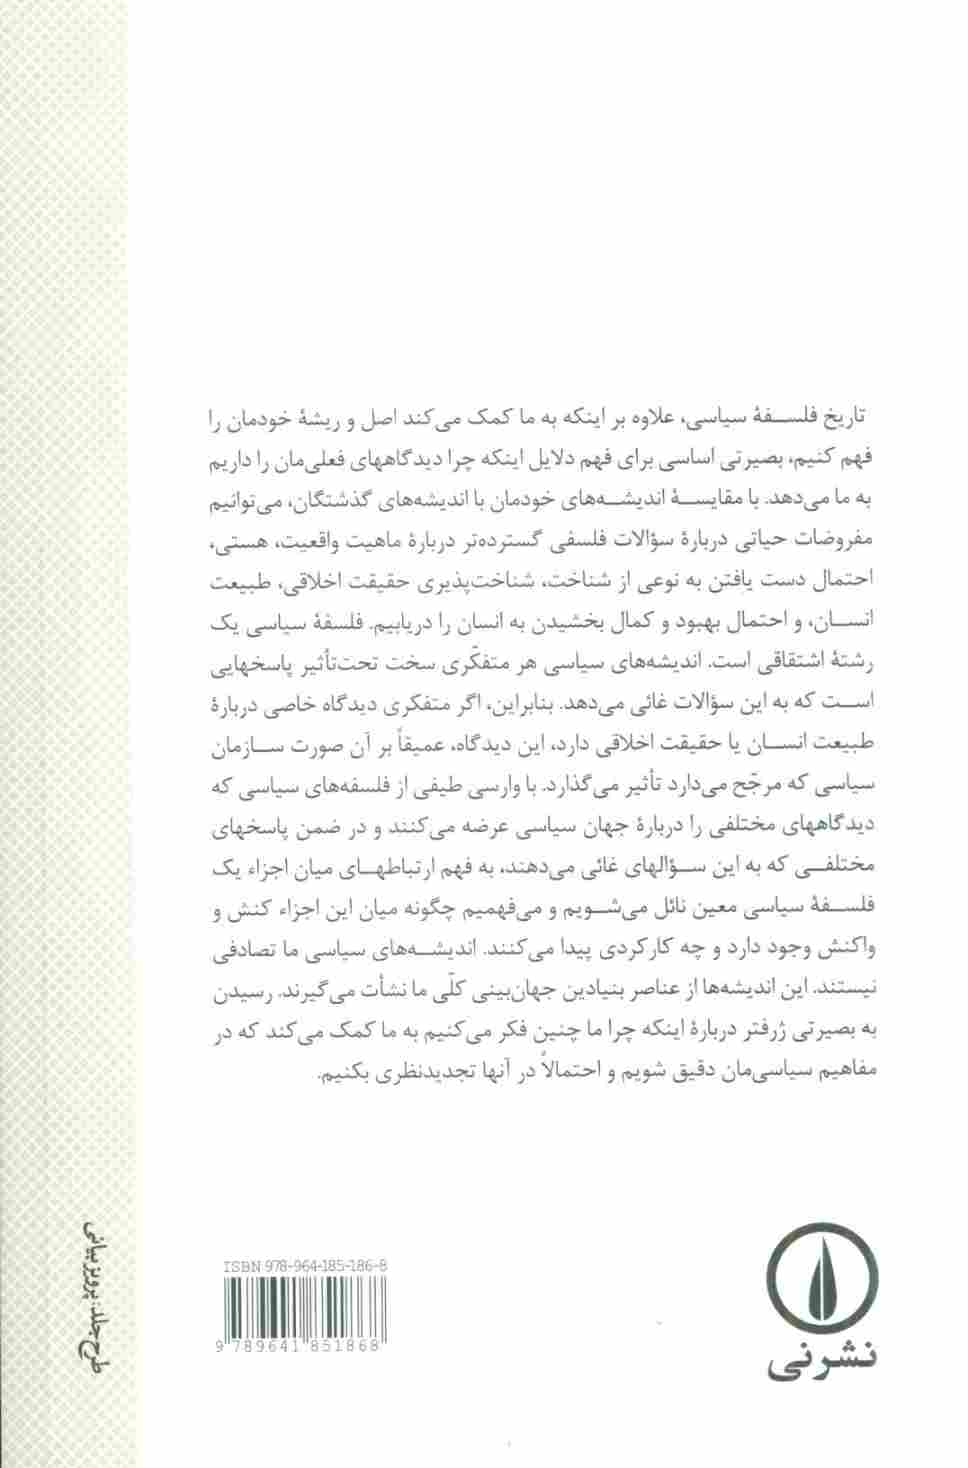 تاریخ فلسـفهٔ سیاسی، علاوه بر اینکه به ما کمک می‌کند اصل و ریشهٔ خودمان را
فهم کنیم، بصیرتی اساسی برای فهم دلایل اینکه چرا دیدگاههای فعلی‌مان را داریم
به ما می‌دهد. با مقایسـهٔ اندیشـه‌های خودمان با اندیشه‌های گذشتگان، می‌توانیم
مفروضات حیاتی دربارهٔ سؤالات فلسفی گسترده‌تر دربارهٔ ماهیت واقعیت، هستی،
احتمال دست یافتن به نوعی از شناخت، شناخت‌پذیری حقیقت اخلاقی، طبیعت
انسـان، و احتمال بهبود و کمال بخشیدن به انسان را دریابیم. فلسفهٔ سیاسی یک
رشتهٔ اشتقاقی است. اندیشه‌های سیاسی هر متفکّری سخت تحت‌تأثیر پاسخهایی
اسـت که به این سؤالات غائی می‌دهد. بنابراین، اگر متفکری دیدگاه خاصی دربارهٔ
طبیعت انسـان یا حقیقت اخلاقی دارد، این دیدگاه، عمیقاً بر آن صورت سـازمان
سیاسی که مرجّح می‌دارد تأثیر می‌گذارد. با وارسی طیفی از فلسفه‌های سیاسی که
دیدگاههای مختلفی را دربارهٔ جهان سیاسی عرضه می‌کنند و در ضمن پاسخهای
مختلفـی که به این سـؤالهای غائی می‌دهند، به فهم ارتباطهـای میان اجزاء یک
فلسـفهٔ سیاسی معین نائل می‌شـویم و می‌فهمیم چگونه میان این اجزاء کنش و
واکنش وجود دارد و چه کارکردی پیدا می‌کنند. اندیشـه‌های سیاسی ما تصادفی
نیستند. این اندیشه‌ها از عناصر بنیادین جهان‌بینی کلّی ما نشأت می‌گیرند. رسیدن
به بصیرتی ژرفتر دربارهٔ اینکه چرا ما چنین فکر می‌کنیم به ما کمک می‌کند که در
مفاهیم سیاسی‌مان دقیق شویم و احتمالاً در آنها تجدیدنظری بکنیم.
طرح جلد: پرویز بیانی
ISBN 978-964-185-186-8
9 789641 851868
نشرنی